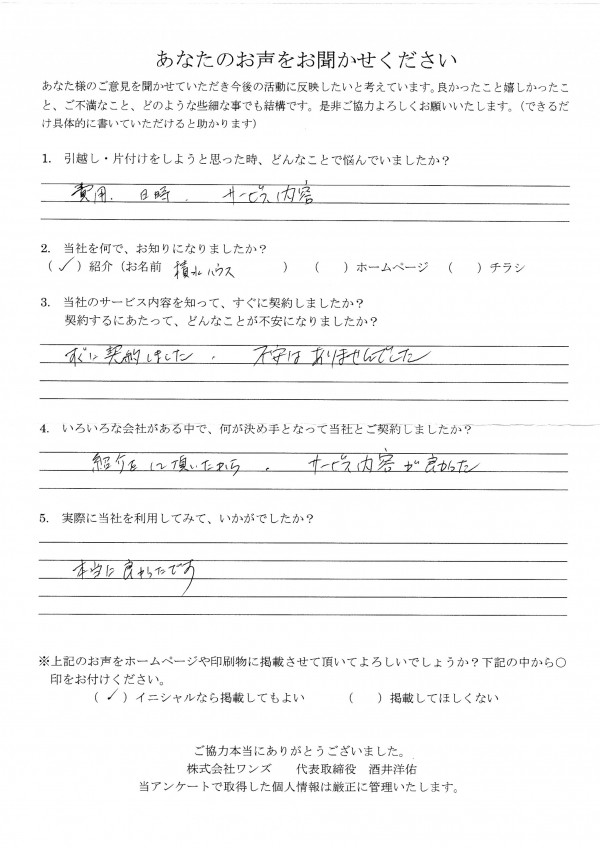 あなたのお声をお聞かせください
あなた様のご意見を聞かせていただき今後の活動に反映したいと考えています。良かったこと嬉しかったこ
と、ご不満なこと、どのような些細な事でも結構です。是非ご協力よろしくお願いいたします。（できるだ
け具体的に書いていただけると助かります）
1. 引越し・片付けをしようと思った時、どんなことで悩んでいましたか？
費用、日時、サービス内容
2. 当社を何で、お知りになりましたか？
（✓）紹介（お名前 積水ハウス ） （ ）ホームページ （ ）チラシ
3. 当社のサービス内容を知って、すぐに契約しましたか？
契約するにあたって、どんなことが不安になりましたか？
すぐに契約しました。 不安はありませんでした
4. いろいろな会社がある中で、何が決め手となって当社とご契約しましたか？
紹介をして頂いたから。 サービス内容が良かった
5. 実際に当社を利用してみて、いかがでしたか？
本当に良かったです
※上記のお声をホームページや印刷物に掲載させて頂いてよろしいでしょうか？下記の中から○
印をお付けください。
（✓）イニシャルなら掲載してもよい （ ）掲載してほしくない
ご協力本当にありがとうございました。
株式会社ワンズ 代表取締役 酒井洋佑
当アンケートで取得した個人情報は厳正に管理いたします。